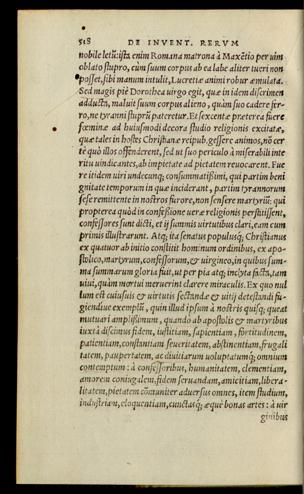 518 DE INVENT. RERVM
nobile letũ: ista enim Romana matrona à Maxẽtio per uim
oblato stupro, cùm suum corpus ab ea labe aliter tueri non
posset, sibi manum intulit, Lucretiæ animi robur æmulata.
Sed magis piè Dorothea uirgo egit, quæ in idem discrimen
adducta, maluit suum corpus alieno, quàm suo cadere fer-
ro, ne tyranni stuprũ pateretur. Et sexcentæ præterea fuere
fœminæ ad huiusmodi decora studio religionis excitatæ,
quæ tales in hostes Christianæ reipub. gessere animos, nõ cer
tè quò illos offenderent, sed ut suo periculo à miserabili inte
ritu uindicantes, ab impietate ad pietatem reuocarent. Fue
re itidem uiri undecunq; consummatissimi, qui partim beni
gnitate temporum in quæ inciderant, partim tyrannorum
sese remittente in nostros furore, non sensere martyriũ: qui
propterea quòd in confessione ueræ religionis perstitissent,
confessores sunt dicti, et ij summis uirtutibus clari, eam cum
primis illustrarunt. Atq; ita senatus populusq; Christianus
ex quatuor ab initio constitit hominum ordinibus, ex apo-
stolico, martyrum, confessorum, & uirgineo, in quibus sum-
ma summarum gloria fuit, ut per pia atq; inclyta facta, tam
uiui, quàm mortui meruerint clarere miraculis. Ex quo nul
lum est cuiusuis & uirtutis sectandæ & uitij detestandi fu-
giendiue exemplũ, quin illud ipsum à nostris quisq; queat
mutuari amplissimum, quando ab apostolis & martyribus
iuxtà discimus fidem, iustitiam, sapientiam, fortitudinem,
patientiam, constantiam, seueritatem, abstinentiam, frugali
tatem, paupertatem, ac diuitiarum uoluptatumq́; omnium
contemptum: à confessoribus, humanitatem, clementiam,
amorem coniugalem, fidem seruandam, amicitiam, libera-
litatem, pietatem cõmuniter aduersus omnes, item studium,
industriam, eloquentiam, cunctasq́; æquè bonas artes: à uir
ginibus